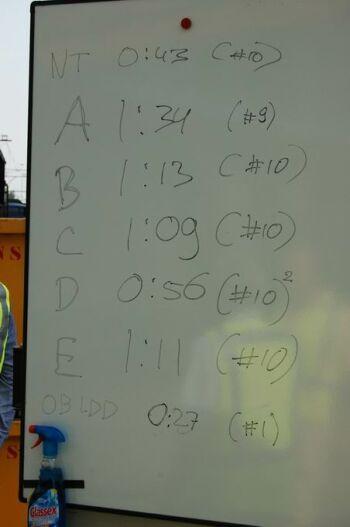 NT 0:43 (#10)
A 1:34 (#9)
B 1:13 (#10)
C 1:09 (#10)
D 0:56 (#10)²
E 1:11 (#10)
OB LDD 0:27 (#1)
Glassex